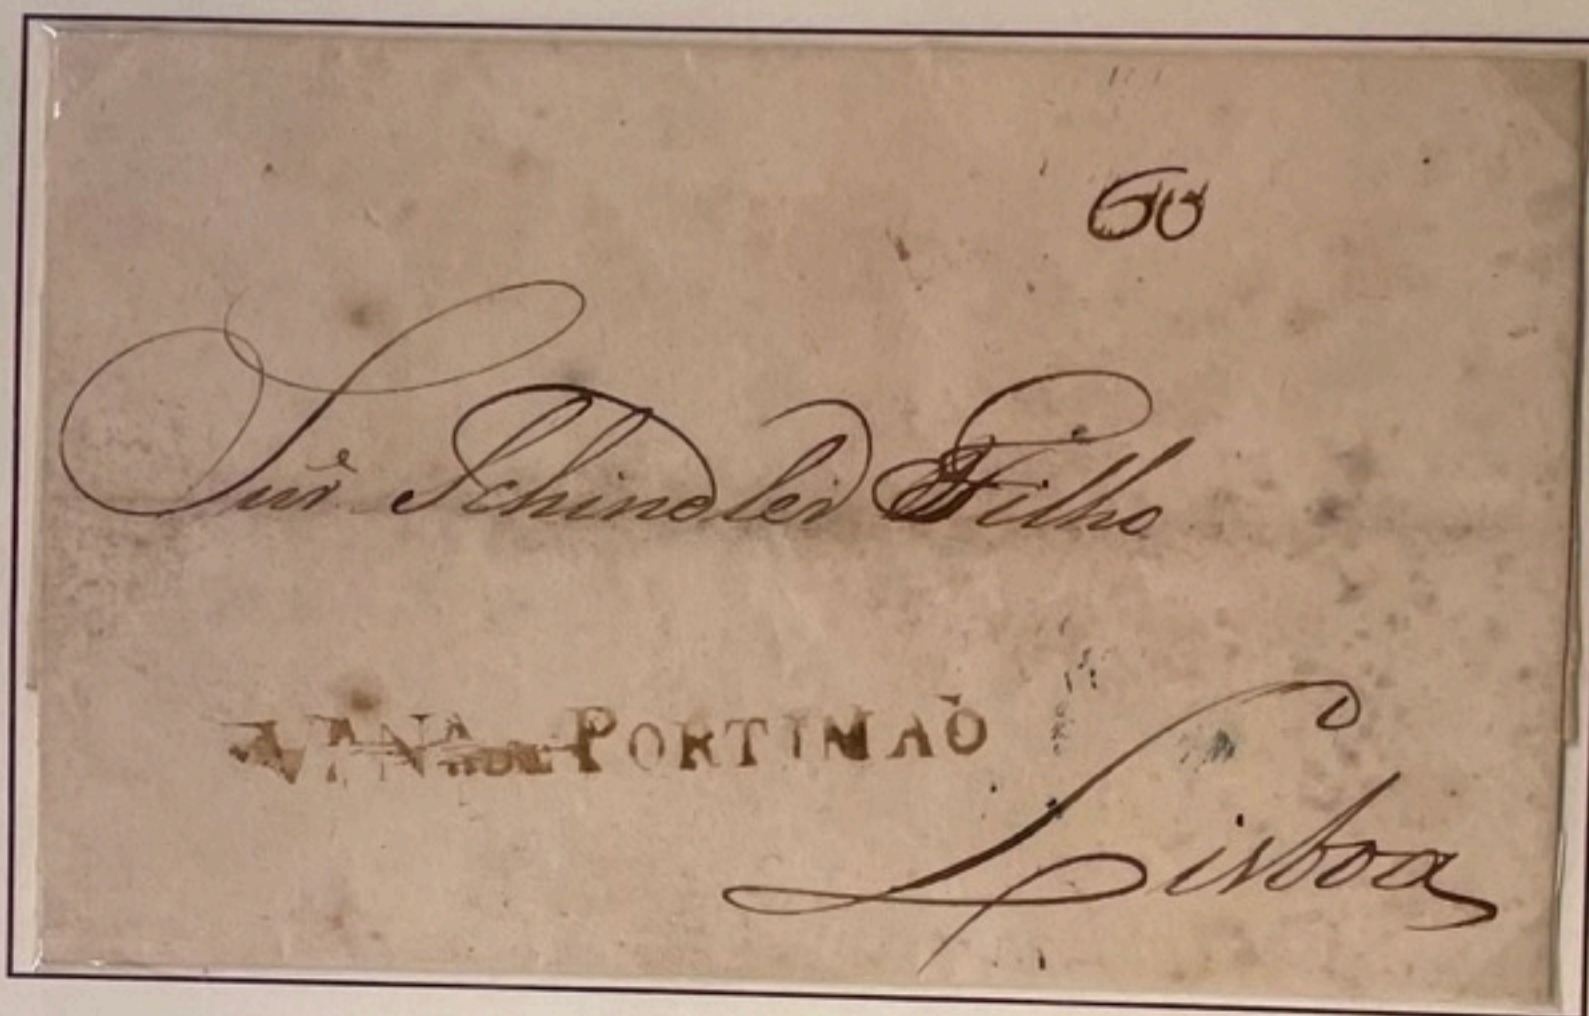 60
Snr. Schindler Filho
VANA DE PORTIMAÕ
Lisboa